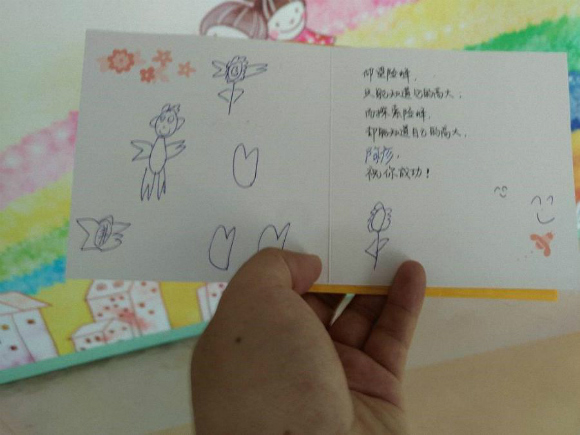 仰望险峰，
只能知道它的高大，
而探索险峰，
却能知道自己的高大，
祝你成功！